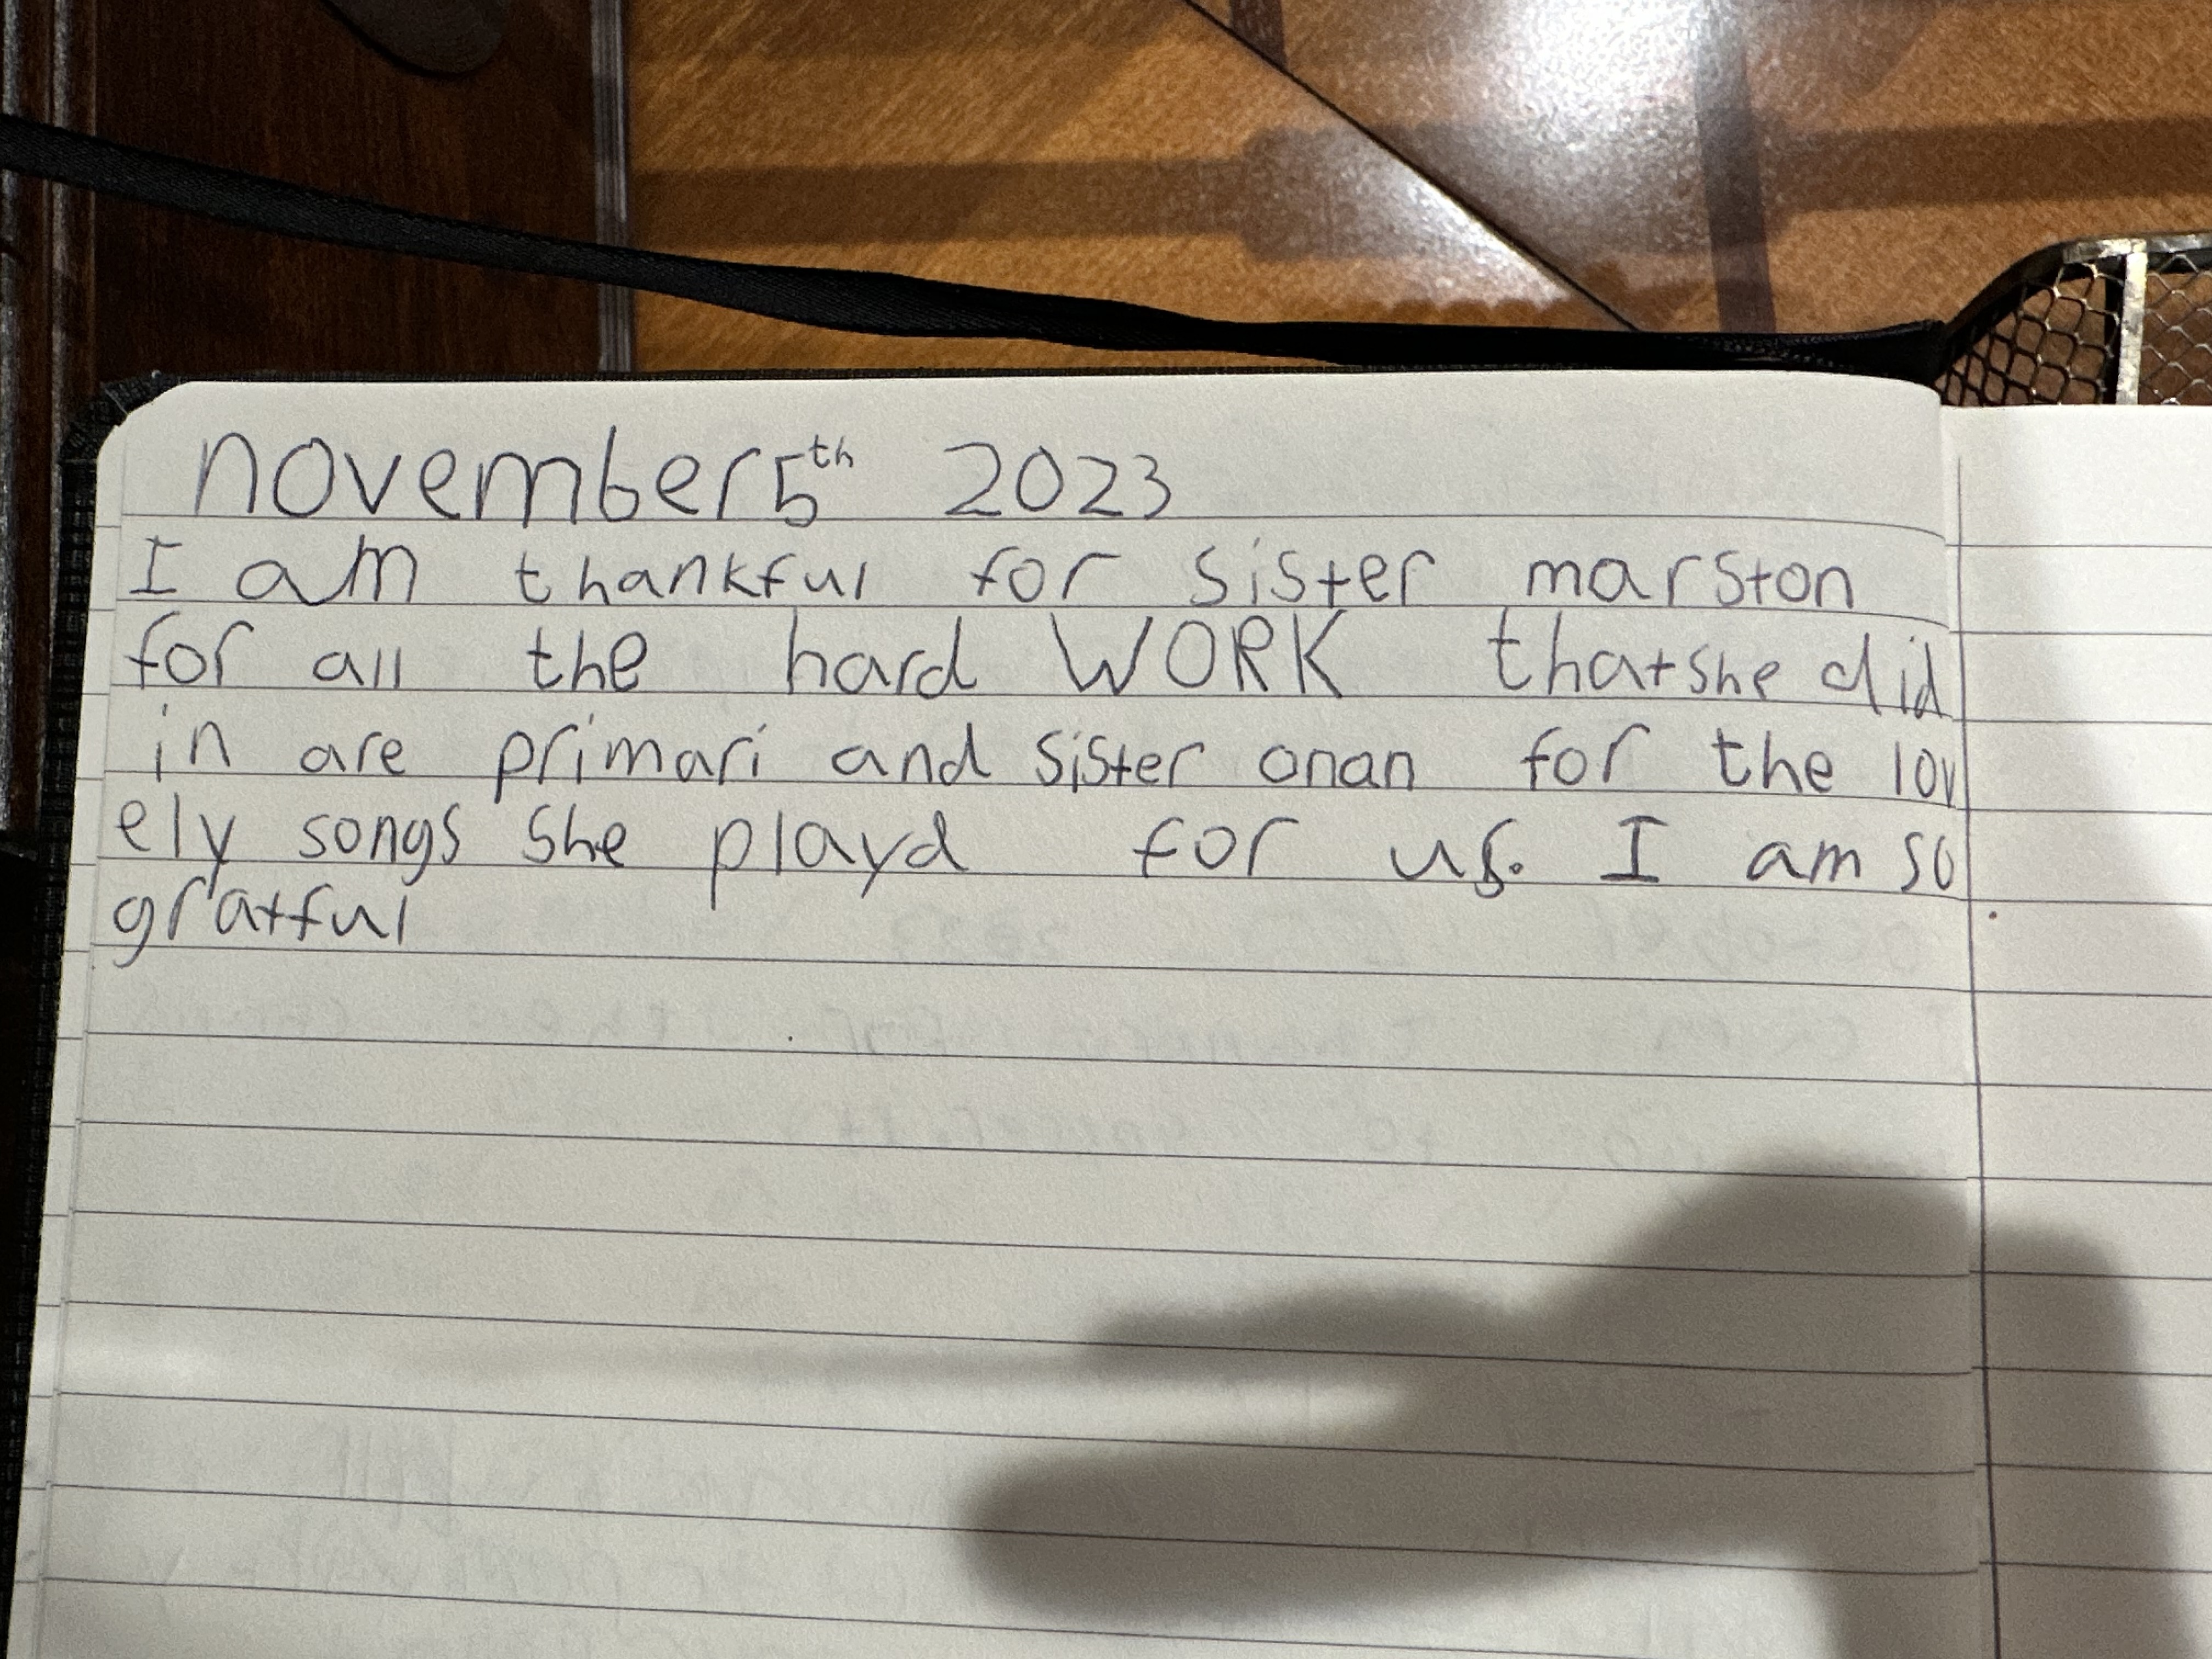 november 5th 2023
I am thankful for sister marston
for all the hard WORK that she did
in are primari and sister onan for the lov
ely songs she playd for us. I am so
gratful